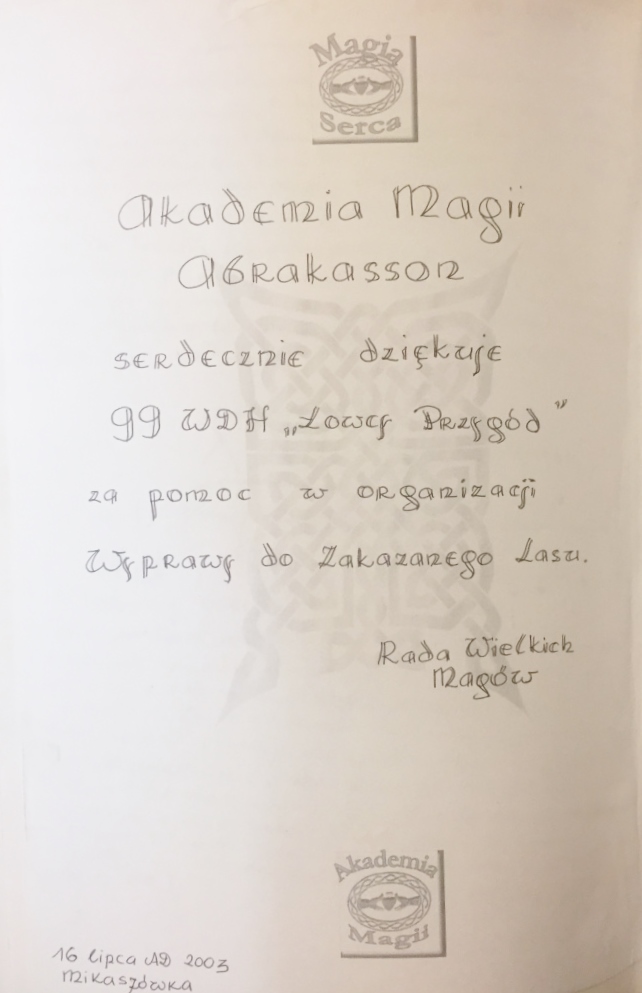 Magia
Serca
Akademia Magii
Abrakasson
serdecznie dziękuje
99 WDH „Łowcy Przygód”
za pomoc w organizacji
Wyprawy do Zakazanego Lasu.
Rada Wielkich
Magów
Akademia
Magii
16 lipca AD 2003
Mikaszówka